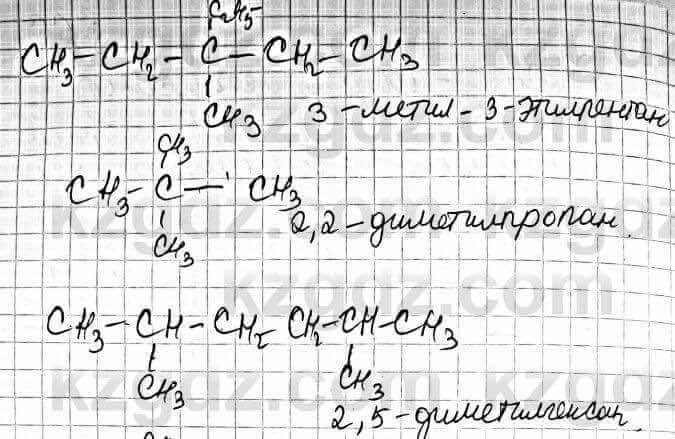 C₂H₅
CH₃ – CH₂ – C – CH₂ – CH₃
CH₃ 3 - метил - 3 - этилпентан
CH₃
CH₃ – C – CH₃
CH₃ 2,2 - диметилпропан.
CH₃ – CH – CH₂ CH₂ – CH – CH₃
CH₃ CH₃
2,5 - диметилгексан.
kzgdz.com